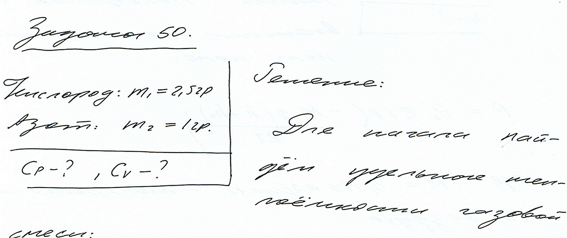 Задача 50.
Кислород: m₁ = 2,5гр
Азот: m₂ = 1гр.
Cp-? , Cv-?
Решение:
Для начала най-
дём удельные теп-
лоёмкости газовой
смеси: